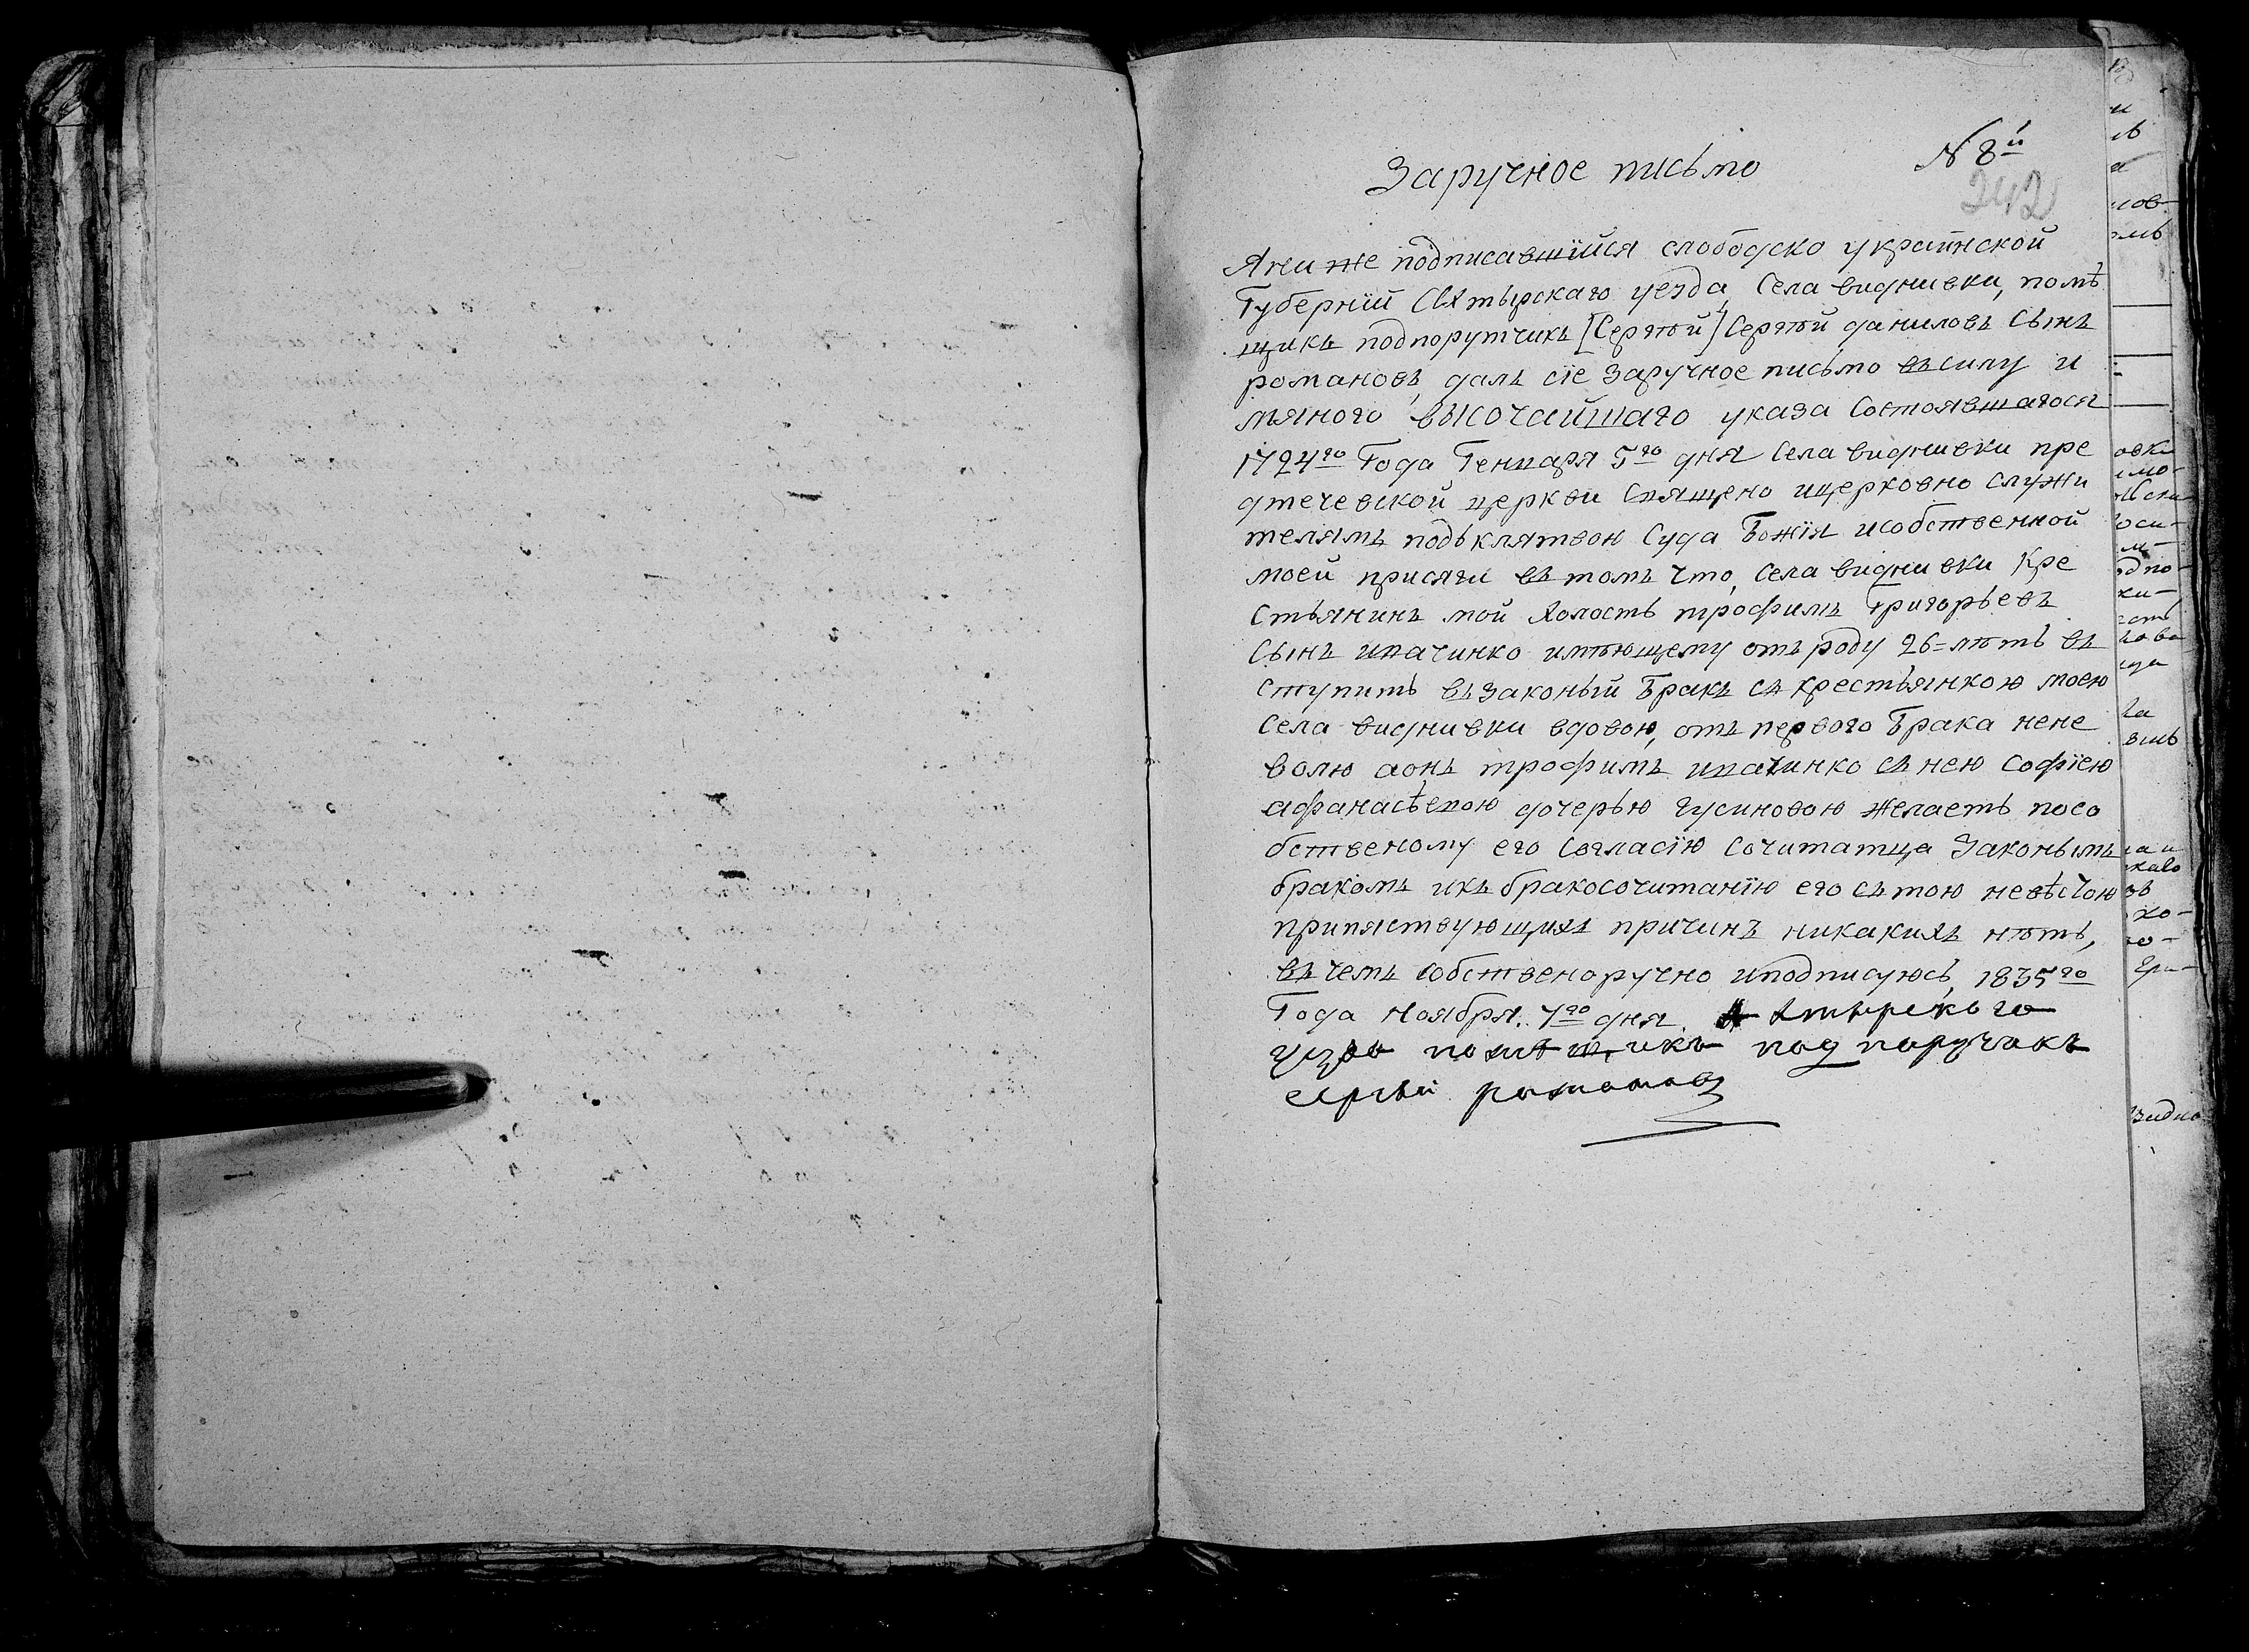 N 8й
Заручное письмо
242
Я ни же подписавшїйся слободско украинской
Губернїй Ахтырскаго уезда, Села видниевки, помѣ
щикъ подпорутчикъ [Сергѣй] Сергѣй даниловъ Сынъ
романовъ, далъ сїе Заручное письмо въ силу и
мяного высочайшаго указа Состоявшагося
1724го Года Генваря 5го дня Села видниевки пре
дтечевской церкви Священо ицерковно Служи
телямъ подъ клятвою Суда Божїя исобственной
моей присяги въ томъ что, села видниевки Кре
стьянинъ мой холостъ трофимъ Григорьевъ
Сынъ ипачинко имѣющему отъ роду 26=лѣтъ въ
ступить въ законый Бракъ съ крестьянкою моею
Села видниевки вдовою, отъ первого Брака нене
волю аонъ трофимъ ипачинко съ нею Софїею
афанасѣевою дочерью гусиновою желаетъ посо
бственому его Согласїю Сочитатца Законымъ
бракомъ икъ бракосочитанїю его съ тою невѣстою
припяствующихъ причинъ никакихъ нѣтъ,
въ чемъ собственоручно иподписуюсь, 1835го
Года Ноября. 7го дня. Ахтырскаго
уезда помѣщикъ подпоручикъ
сергѣй романовъ